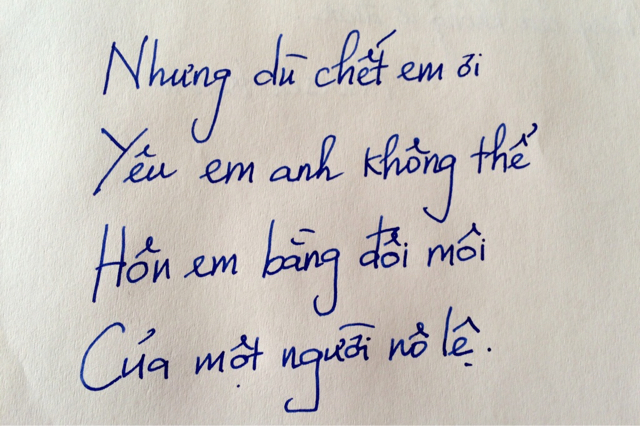 Nhưng dù chết em ơi
Yêu em anh không thể
Hôn em bằng đôi môi
Của một người nô lệ.